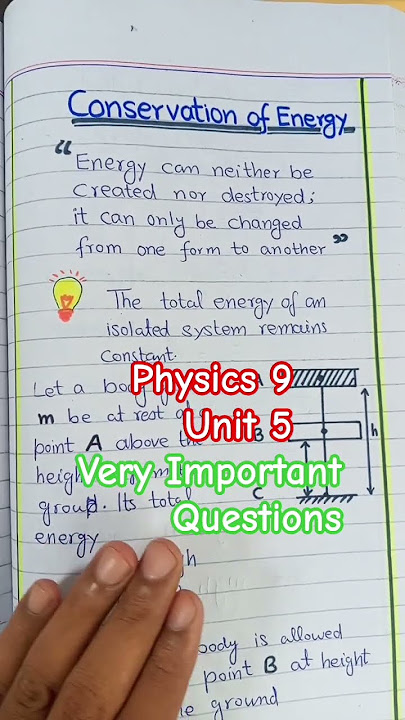 Conservation of Energy
“ Energy can neither be
created nor destroyed;
it can only be changed
from one form to another ”
The total energy of an
isolated system remains
constant.
Let a
m be at rest
point A above the
height
. Its total
energy
h
B
C
h
body is allowed
point B at height
ground
Physics 9
Unit 5
Very Important
Questions